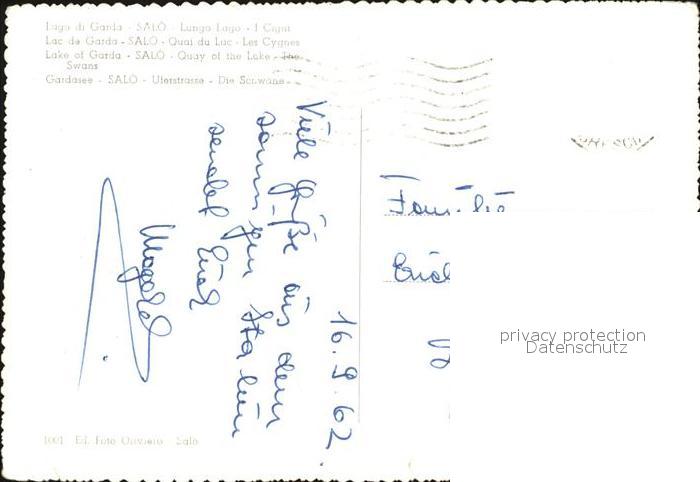 Lago di Garda - SALÒ - Lungo Lago - I Cigni
Lac de Garda - SALÒ - Quai du Luc - Les Cygnes
Lake of Garda - SALÒ - Quay of the Lake - The
Swans
Gardasee - SALÒ - Uferstrasse - Die Schwäne
16.9.62.
Viele Grüße aus dem
sonnigen Italien
sendet Euch
Familie
privacy protection
Datenschutz
1001 Ed. Foto Oliviero - Salò